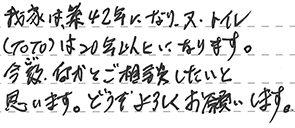 我家は築42年になり、又、トイレ
(TOTO)は20年以上になります。
今後、なにかとご相談したいと
思います。どうぞよろしくお願いします。